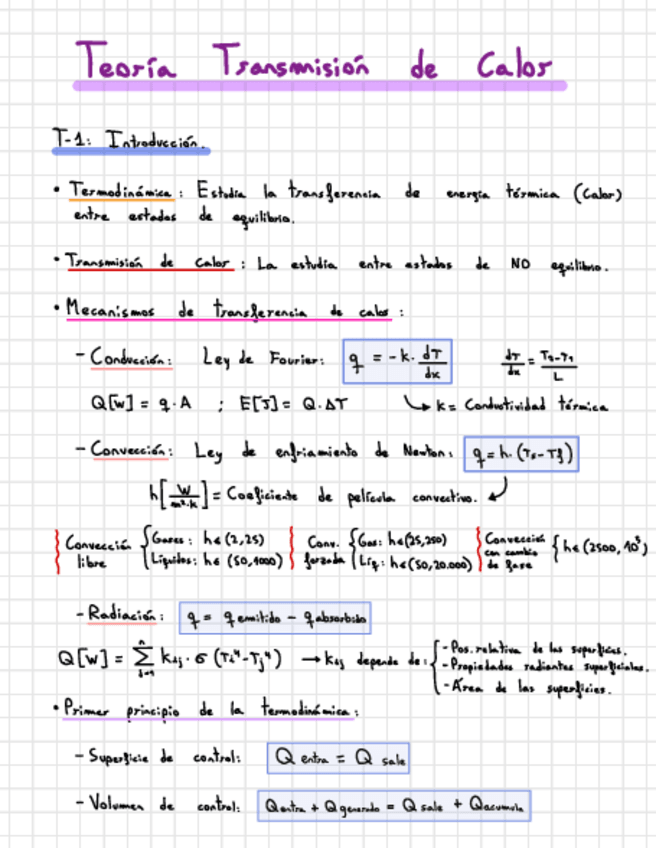 Teoría Transmisión de Calor
T-1: Introducción.
• Termodinámica: Estudia la transferencia de energía térmica (Calor)
entre estados de equilibrio.
• Transmisión de Calor: La estudia entre estados de NO equilibrio.
• Mecanismos de transferencia de calor:
- Conducción: Ley de Fourier: q = -k · dT/dx dT/dx = T2-T1/L
Q[W] = q·A ; E[J] = Q·ΔT ↳ k = Conductividad térmica
- Convección: Ley de enfriamiento de Newton: q = h·(Ts-Tf)
h[W/m²·k] = Coeficiente de película convectivo.
Convección libre { Gases: h∈(2,25) Líquidos: h∈(50,1000) Conv. forzada { Gas: h∈(25,250) Líq: h∈(50,20.000) Convección con cambio de fase { h∈(2500, 10⁵)
- Radiación: q = q emitido - q absorbido
Q[W] = Σ(j=1, n) kij · σ (Ti⁴-Tj⁴) → kij depende de: { - Pos. relativa de las superficies.
- Propiedades radiantes superficiales.
- Área de las superficies.
• Primer principio de la termodinámica:
- Superficie de control: Q entra = Q sale
- Volumen de control: Q entra + Q generado = Q sale + Q acumula